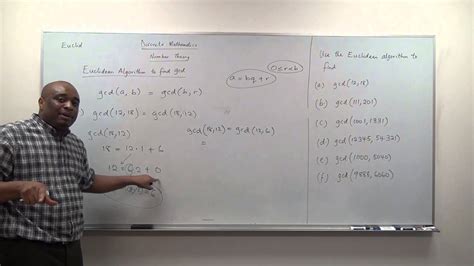 Euclid
Discrete Mathematics
Number Theory
Euclidean Algorithm to find gcd
a = bq + r
0≤r<b
gcd(a, b) = gcd(b, r)
gcd(12,18) = gcd(18,12)
gcd(18,12)
18 = 12·1 + 6
12 = 6·2 + 0
gcd(18,12) = gcd(12,6)
=
Use the Euclidean algorithm to find
(a) gcd(12,18)
(b) gcd(111,201)
(c) gcd(1001,1331)
(d) gcd(12345, 54321)
(e) gcd(1000, 5040)
(f) gcd(9888, 6060)